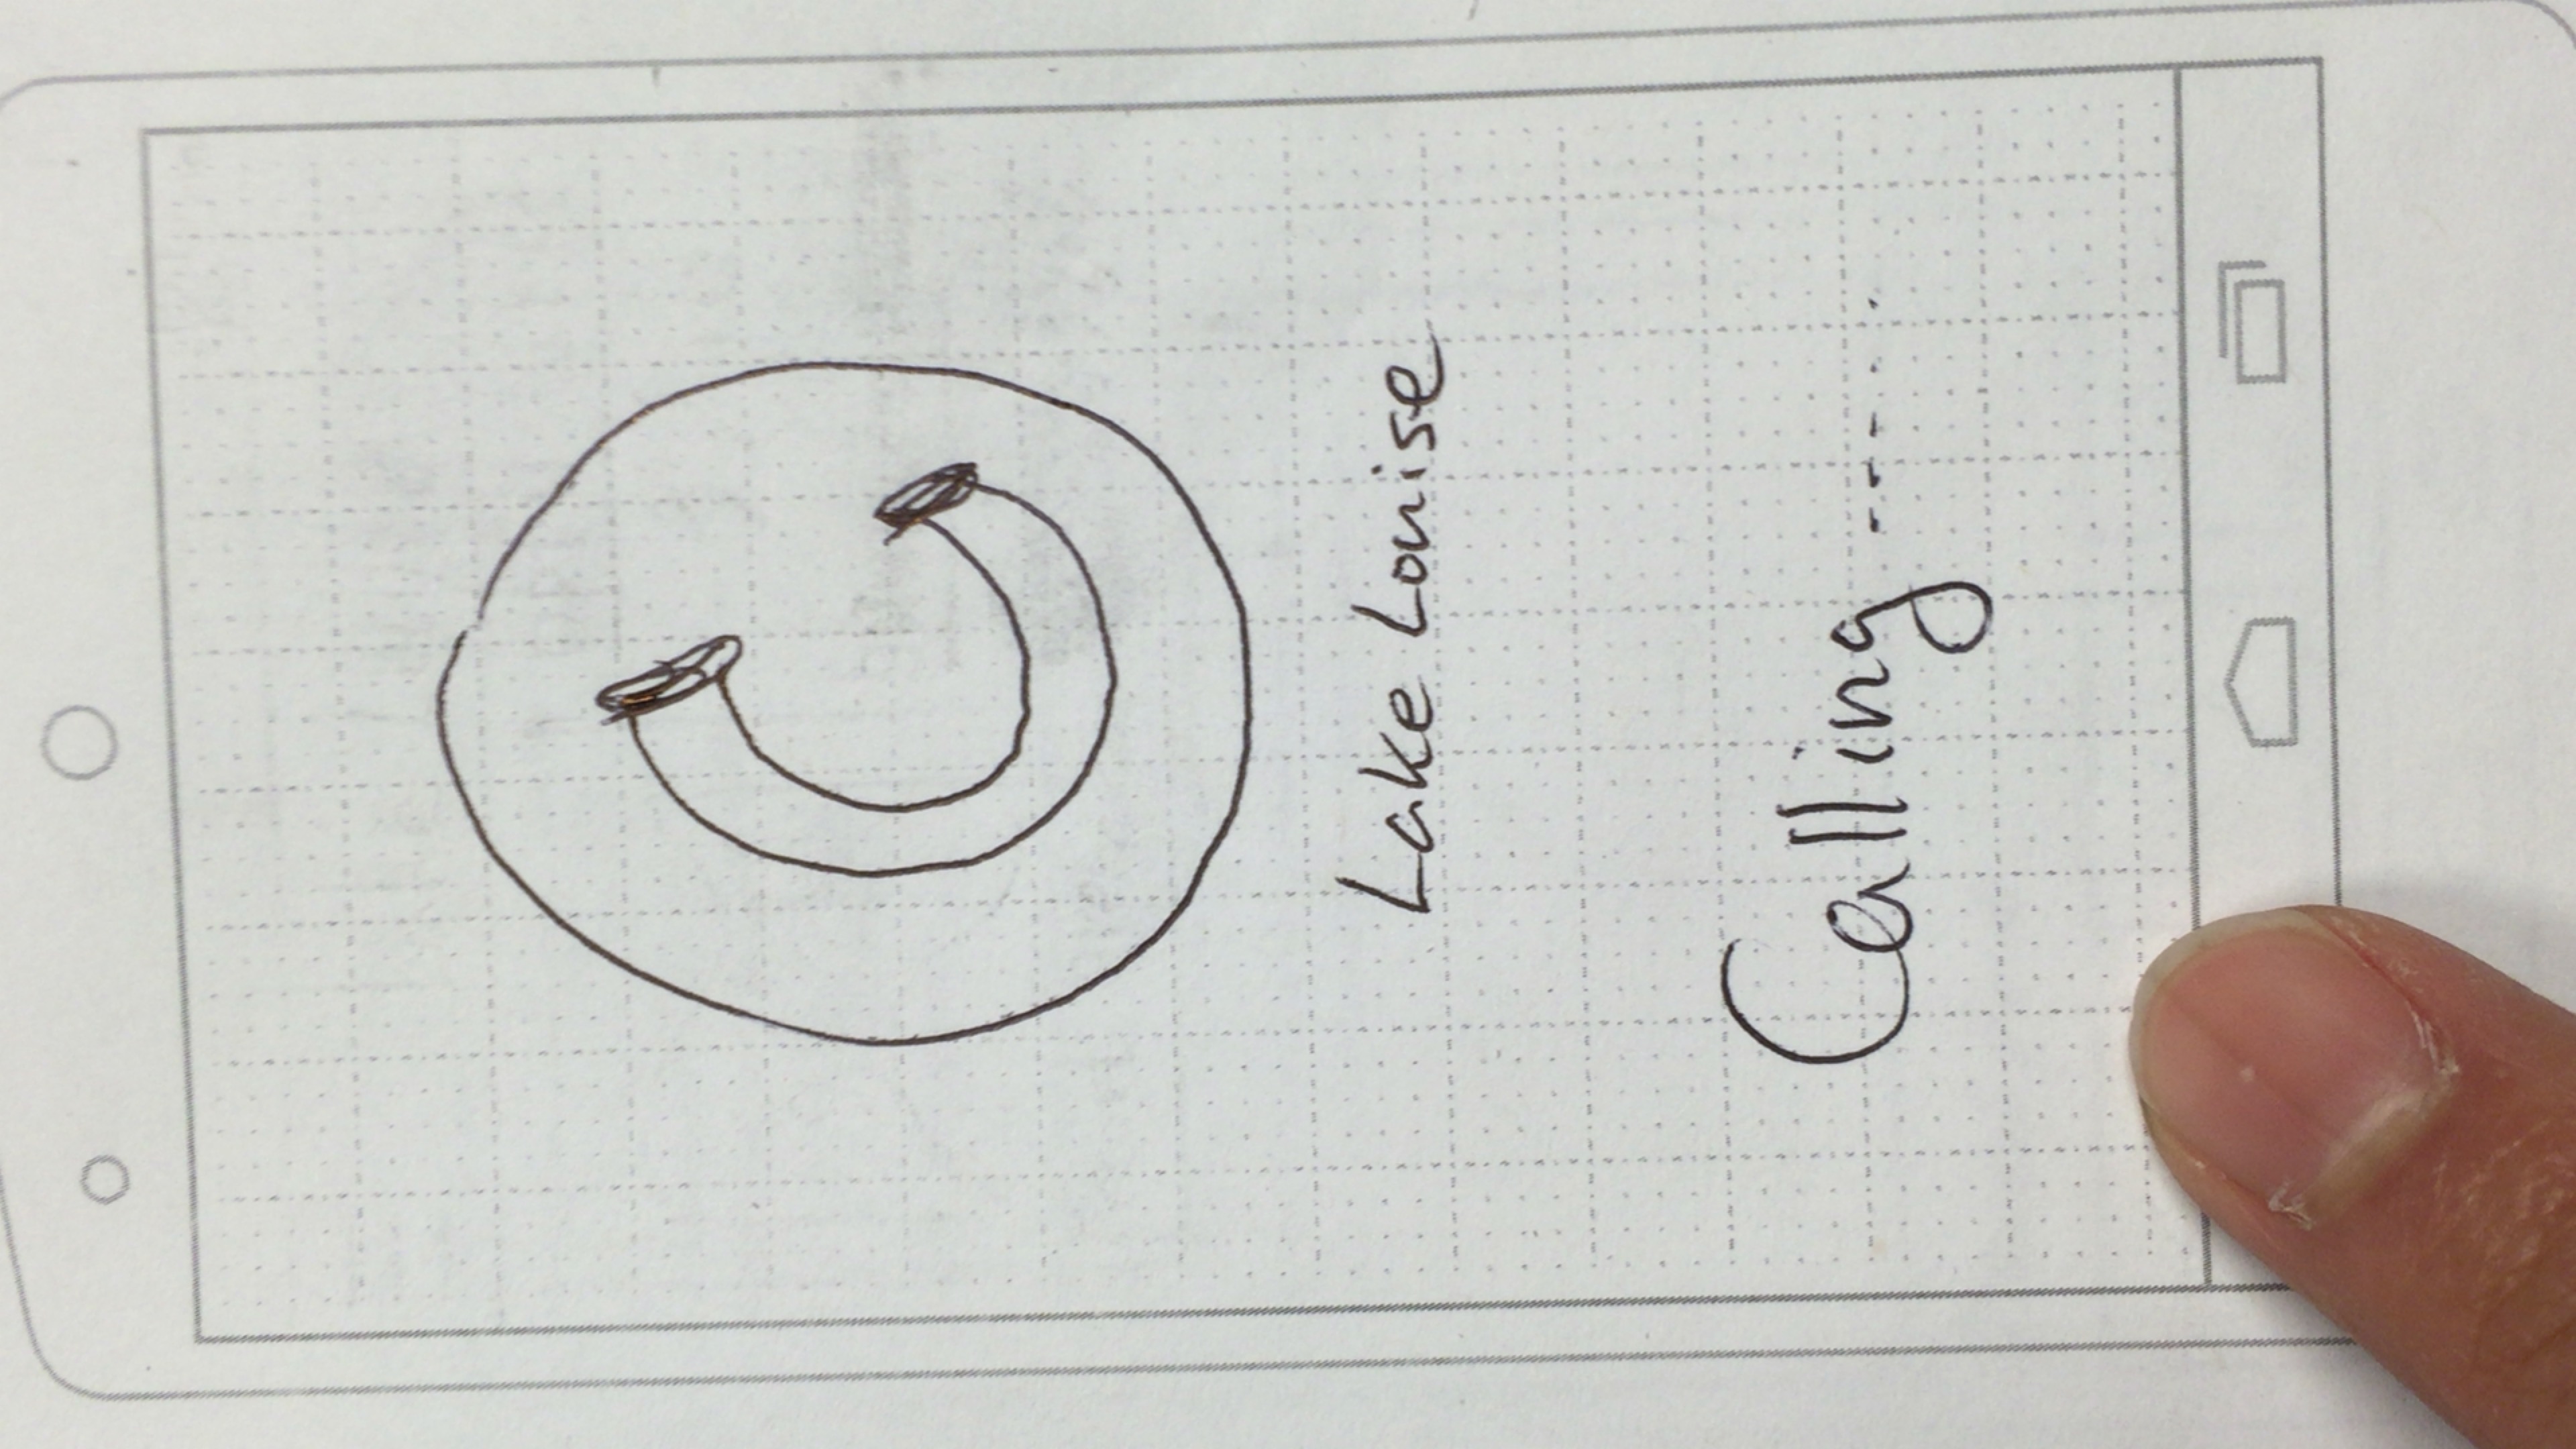 Lake Louise
Calling ......